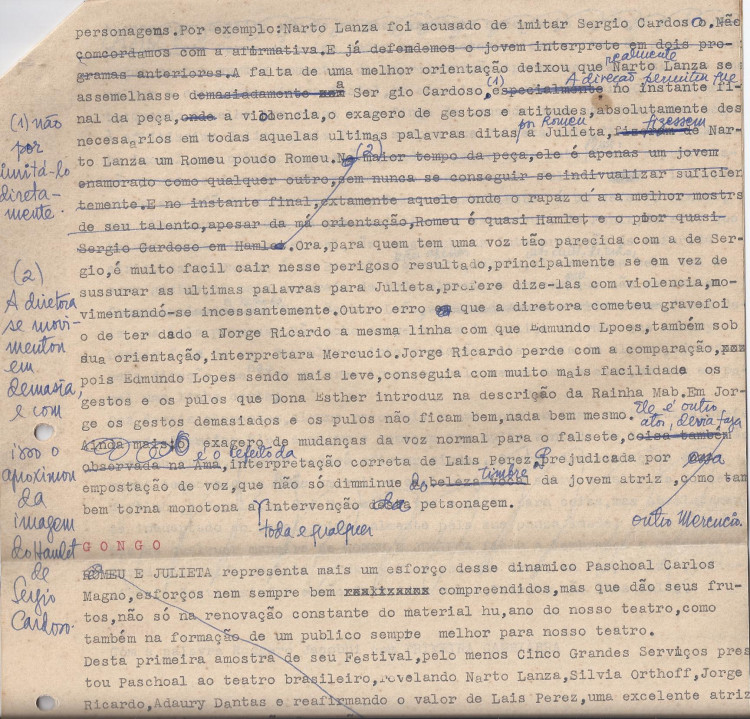 personagens.Por exemplo:Narto Lanza foi acusado de imitar Sergio Cardoso.Não
comcordamos com a afirmativa.E já defendemos o jovem interprete em dois pro-
gramas anteriores.A falta de uma melhor orientação deixou que Narto Lanza se
realmente
assemelhasse demasiadamente a Sergio Cardoso, especialmente no instante fi-
(1) A direção permitiu que
nal da peça,onde a violencia,o exagero de gestos e atitudes,absolutamente des
necesarios em todas aquelas ultimas palavras ditas a Julieta,fizeram de Nar-
por Romeu
fizessem
to Lanza um Romeu pouco Romeu.No maior tempo da peça,ele é apenas um jovem
(2)
enamorado como qualquer outro,sem nunca se conseguir se indivualizar suficien
temente.E no instante final,extamente aquele onde o rapaz d'a a melhor mostra
de seu talento,apesar da má orientação,Romeu é quasi Hamlet e o pior quasi
Sergio Cardoso em Hamlet.Ora,para quem tem uma voz tão parecida com a de Ser-
gio,é muito facil cair nesse perigoso resultado,principalmente se em vez de
sussurar as ultimas palavras para Julieta,prefere dize-las com violencia,mo-
vimentando-se incessantemente.Outro erro que a diretora cometeu gravefoi
o de ter dado a Norge Ricardo a mesma linha com que Edmundo Lpoes,também sob
sua orientação,interpretara Mercucio.Jorge Ricardo perde com a comparação,
pois Edmundo Lopes sendo mais leve,conseguia com muito mais facilidade os
gestos e os pulos que Dona Esther introduz na descrição da Rainha Mab.Em Jor-
ge os gestos demasiados e os pulos não ficam bem,nada bem mesmo.
Ele é outro
ator, devia faza
Ainda mais:O exagero de mudanças da voz normal para o falsete,coisa tambem
e o defeito da
observada na Ama,interpretação correta de Lais Perez,prejudicada por essa
empostação de voz,que não só dimminue a beleza vocal da jovem atriz ,como tam
do timbre
bem torna monotona a intervenção da petsonagem.
toda e qualquer
outro Mercucio.
(1) não
por
imitá-lo
direta-
mente.
(2)
A diretora
se movi-
mentou
em
demasia,
e com
isso o
aproximou
da
imagem
do Hamlet
de
Sergio
Cardoso.
GONGO
ROMEU E JULIETA representa mais um esforço desse dinamico Paschoal Carlos
Magno,esforços nem sempre bem compreendidos,mas que dão seus fru-
tos,não só na renovação constante do material hu,ano do nosso teatro,como
também na formação de um publico sempre melhor para nosso teatro.
Desta primeira amostra de seu Festival,pelo menos Cinco Grandes Serviços pres
tou Paschoal ao teatro brasileiro,revelando Narto Lanza,Silvia Orthoff,Jorge
Ricardo,Adaury Dantas e reafirmando o valor de Lais Perez,uma excelente atriz